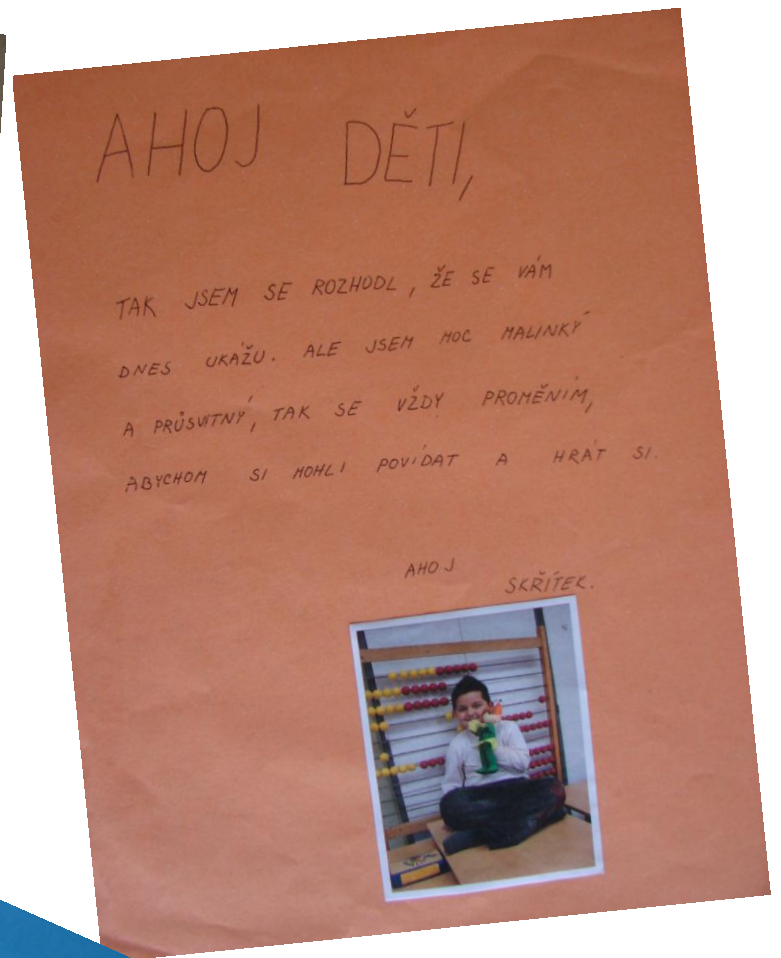 AHOJ DĚTI,
TAK JSEM SE ROZHODL, ŽE SE VÁM
DNES UKÁŽU. ALE JSEM MOC MALINKÝ
A PRŮSVITNÝ, TAK SE VŽDY PROMĚNÍM,
ABYCHOM SI MOHLI POVÍDAT A HRÁT SI.
AHOJ
SKŘÍTEK.